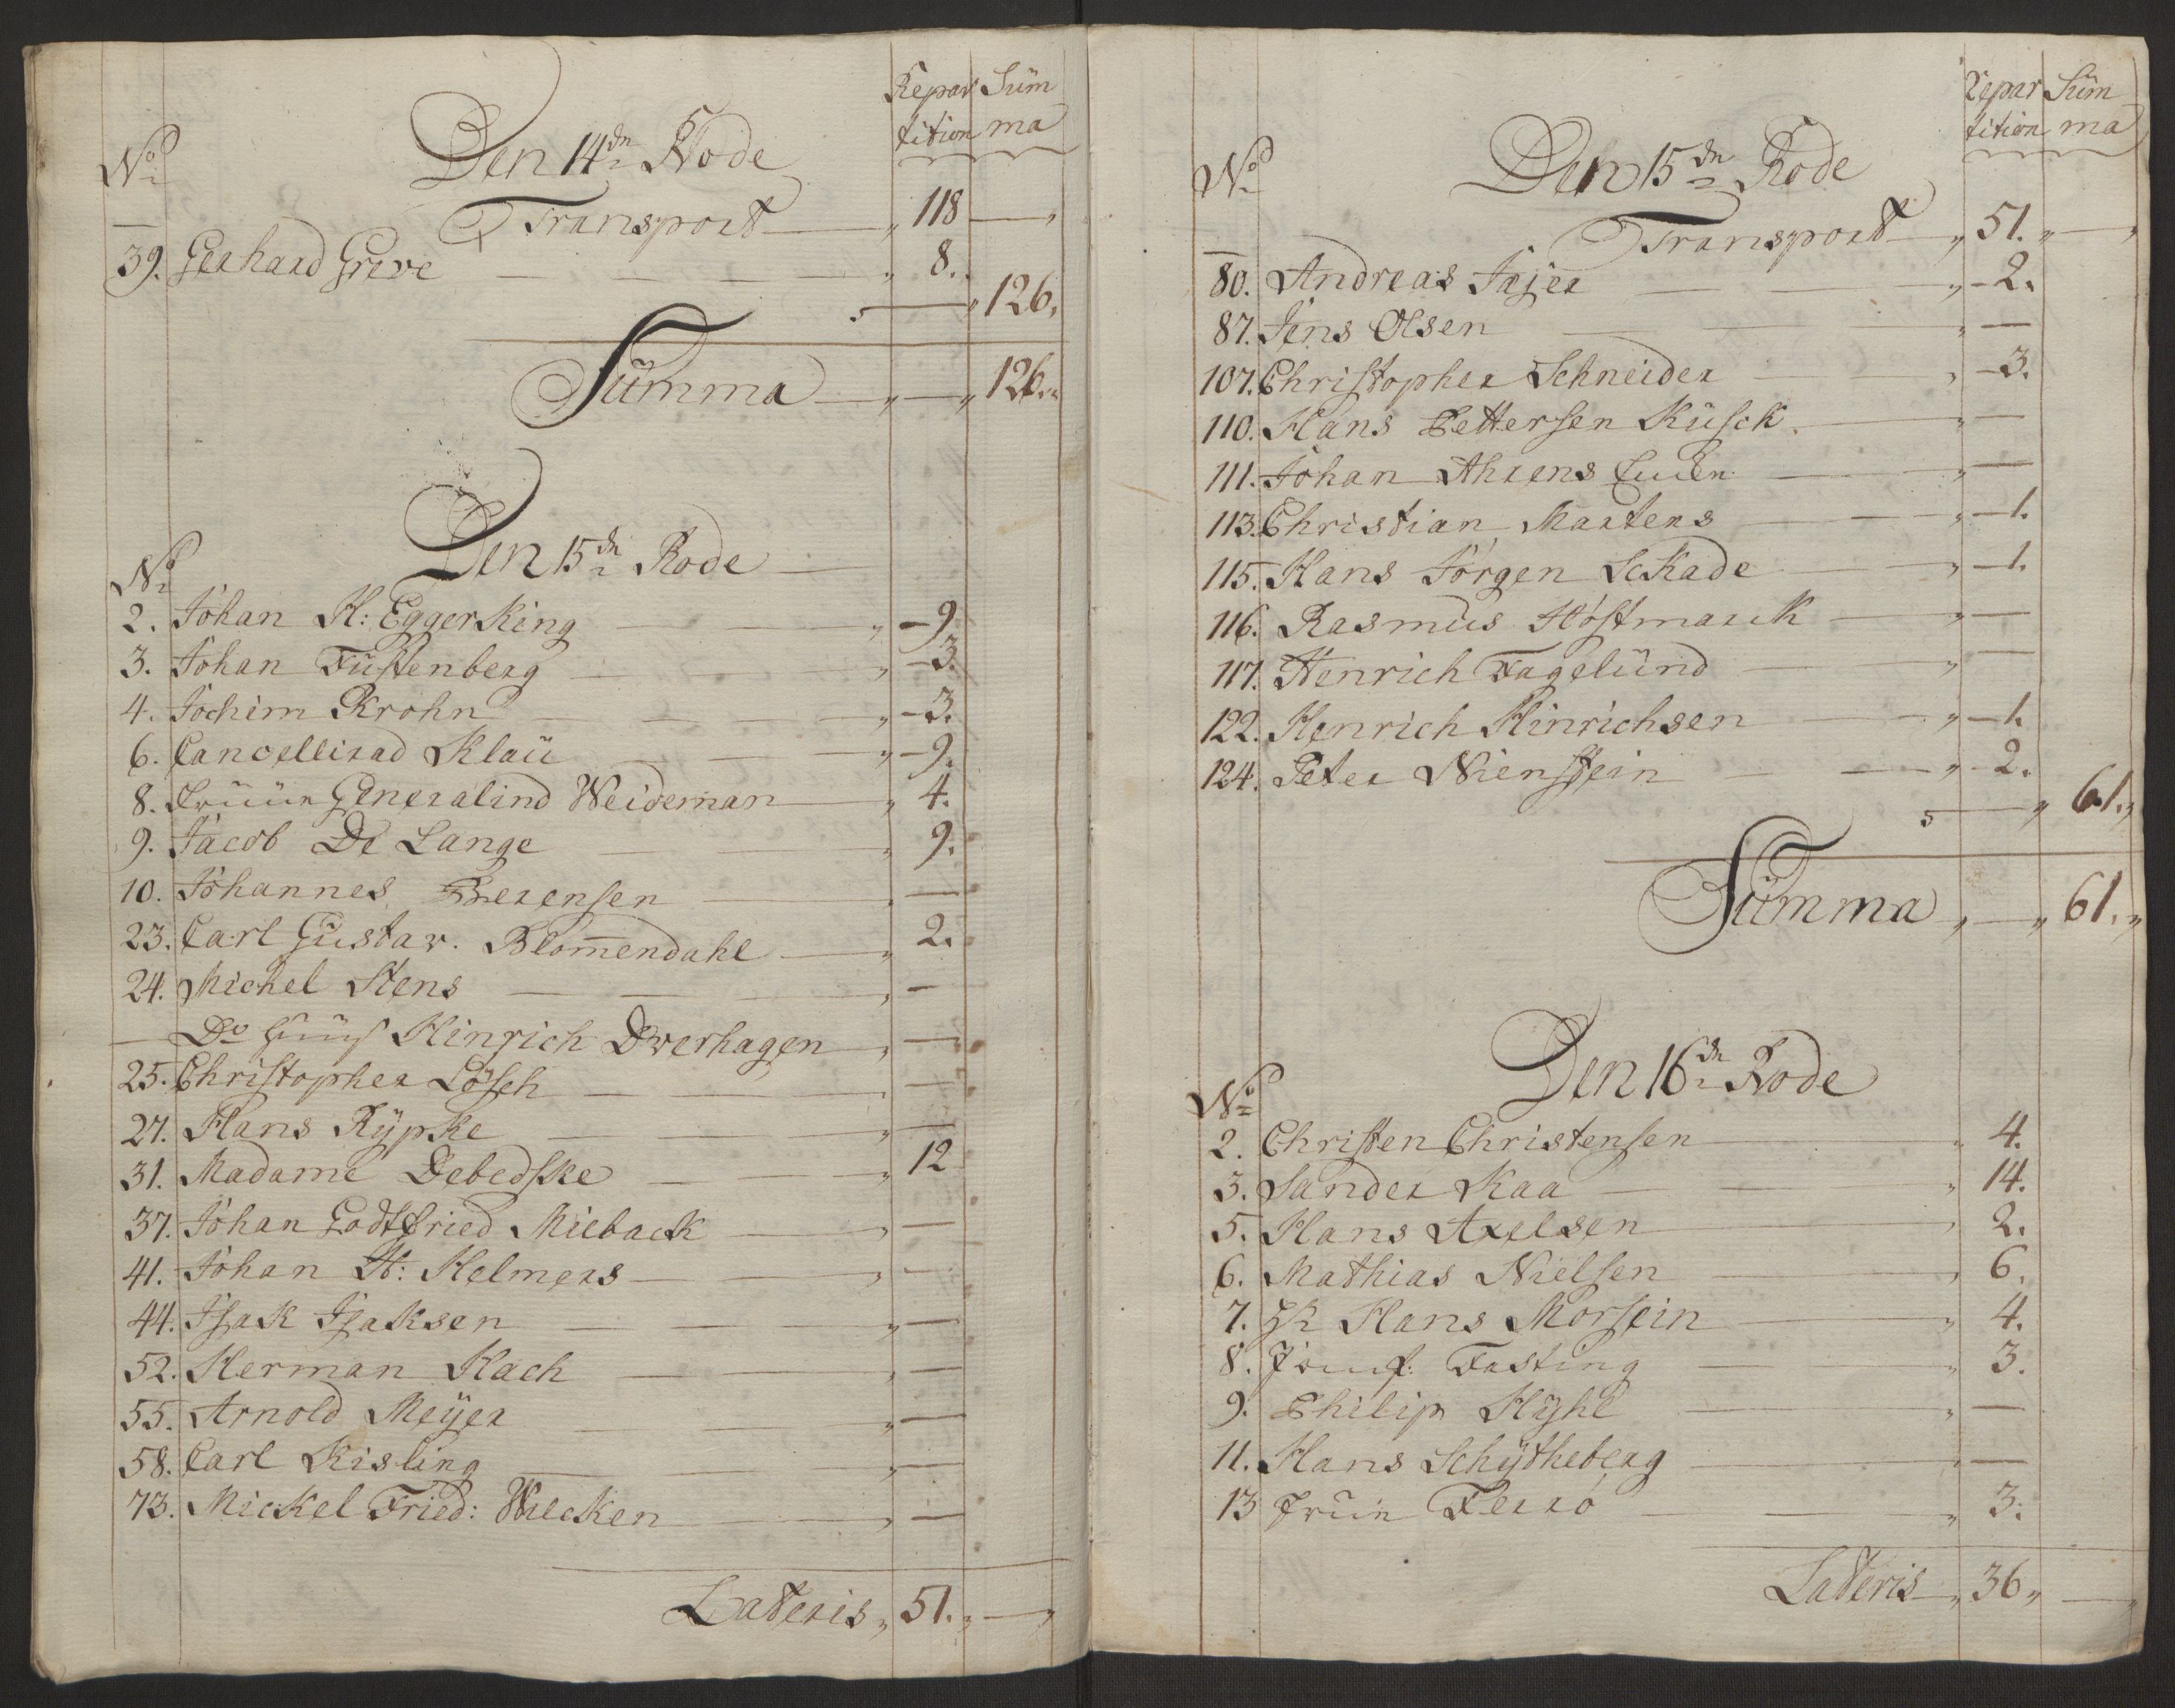 Repar Sum
tition ma
No
Den 14de Rode
Transport 118
39. Gerhard Greve 8.
126.
Summa 126.
Den 15de Rode
No
2. Johan H: Eggerking 9.
3. Johan Fustenberg 3.
4. Jochim Krohn 3.
6. Cancellirad Klaü 9.
8. Fruue Generalind Weideman 4.
9. Jacob De Lange 9.
10. Johannes Berensen —
23. Carl Gustav. Blom̄endahl 2.
24. Michel Stens —
— Do Huus Hinrich Dverhagen —
25. Christopher Lösch —
27. Hans Rÿpke —
31. Madame Debedske 12
37. Johan Godtfried Milback —
41. Johan H: Helmers —
44. Isak Isaksen —
52. Herman Hach —
55. Arnold Meÿer —
58. Carl Kisling —
73. Mickel Fried: Wecken —
Lateris 51.
Repar Sum
tition ma
No
Den 15de Rode
Transport 51.
80. Andreas Jajer 2.
87. Jens Olsen —
107. Christopher Schneider 3.
110. Hans Pettersen Kusck —
111. Johan Ahrens —
113. Christian Martens 1.
115. Hans Jörgen Sckade 1.
116. Rasmus Höstmarck —
117. Henrich Fagelund —
122. Henrich Hinrichsen 1.
124. Peter Nienstein 2.
61.
Summa 61.
Den 16de Rode
No
2. Christen Christensen 4.
3. Sander Kaa 14.
5. Hans Axelsen 2.
6. Mathias Nielsen 6.
7. Hr Hans Morsein 4.
8. Jomf. Fasting 3.
9. Philip Hÿhl —
11. Hans Schÿtheberg —
13 Fruu Ferrö 3.
Lateris 36